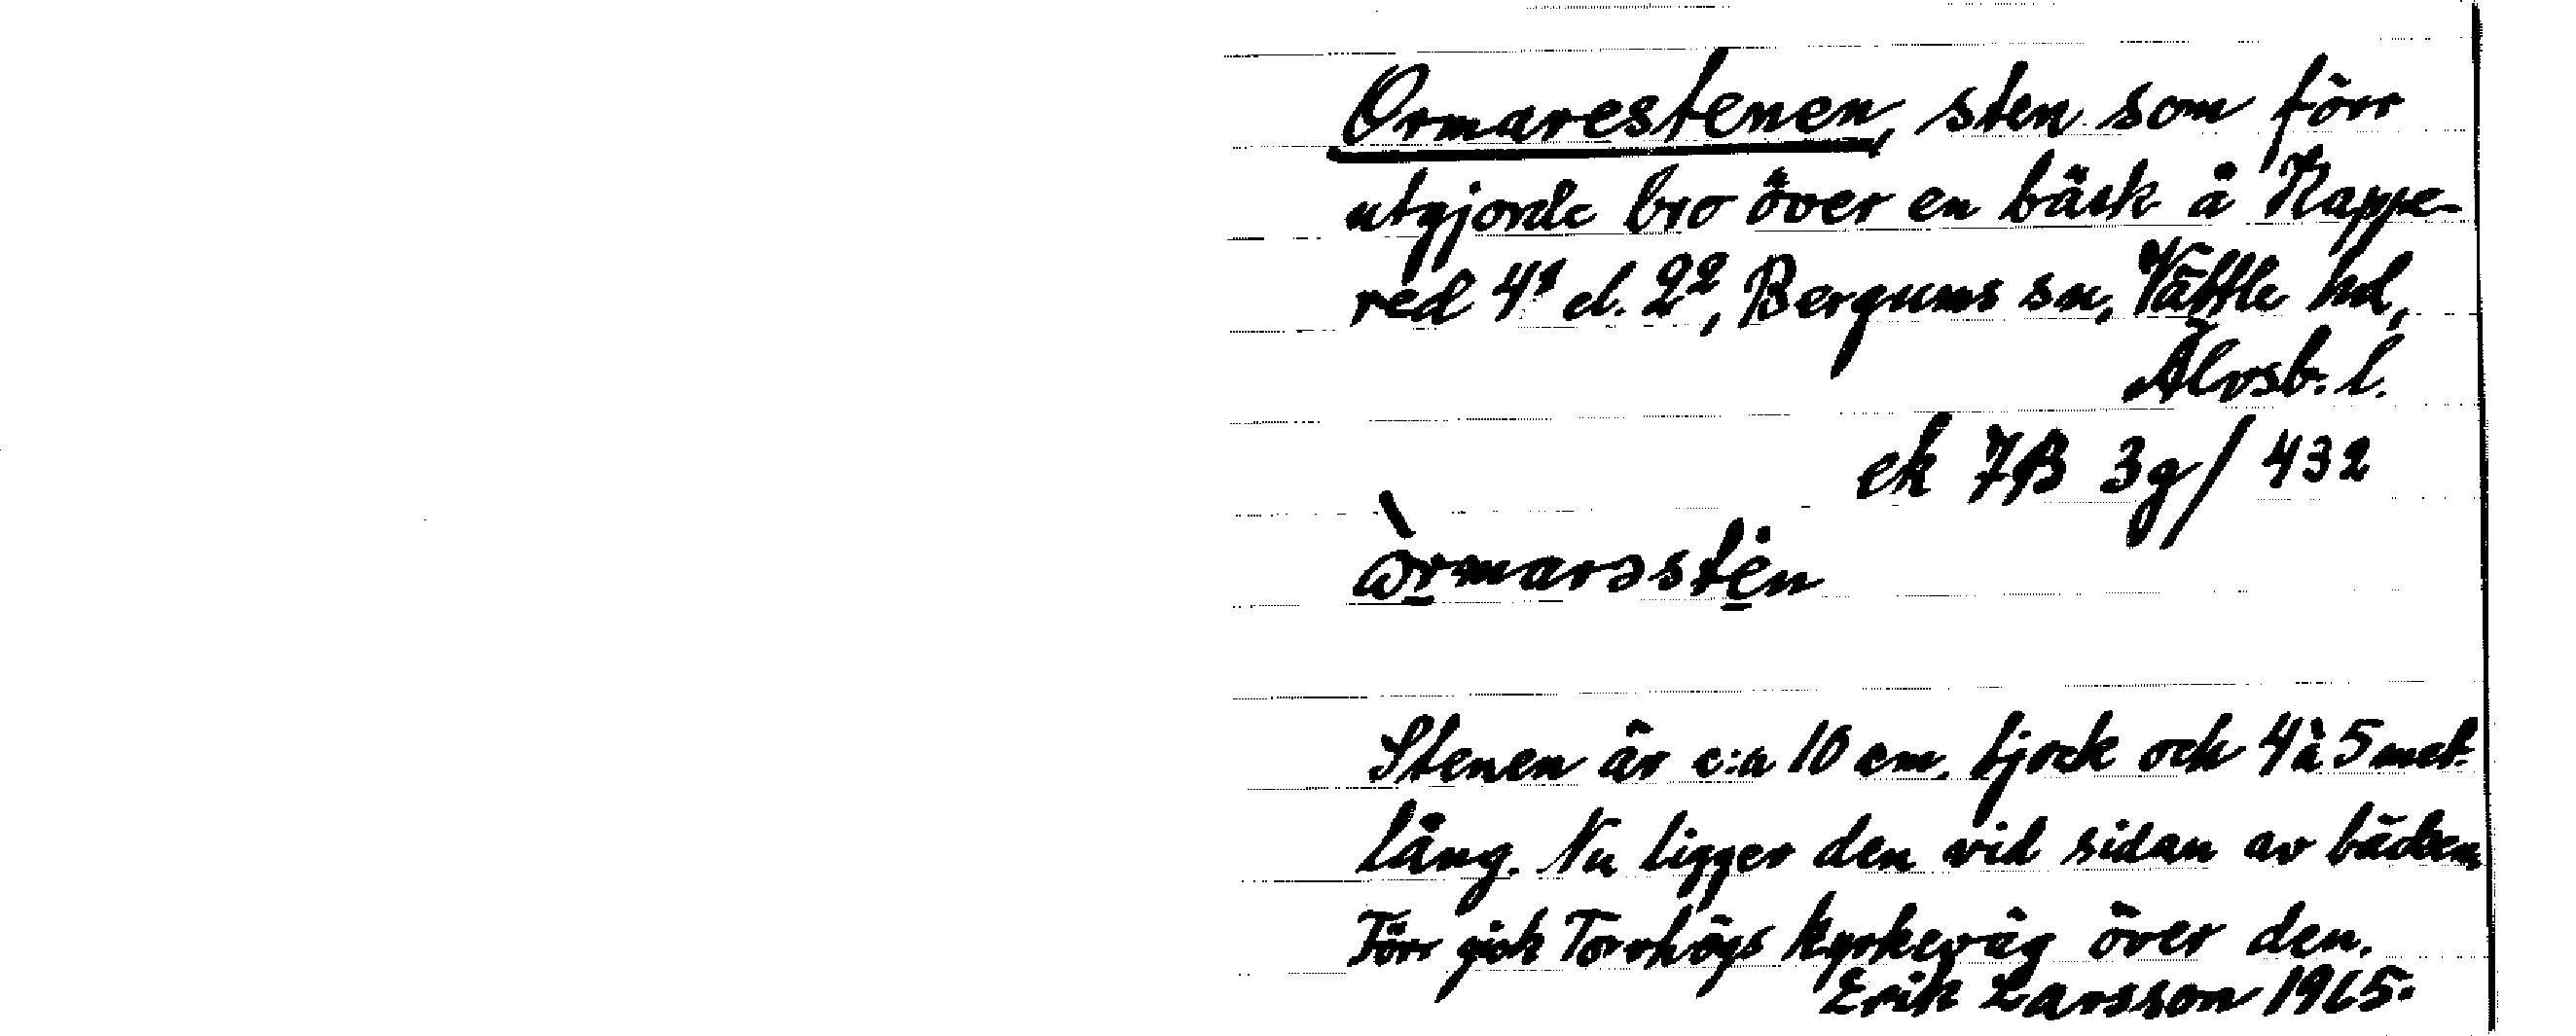 Ormarestenen, sten som förr
utgjorde bro över en bäck å Kappe-
red 4¹ el. 2², Bergums sn, Vättle hd,
Älvsb. l.
ek 7B 3g/432
Stenen är c:a 10 cm. tjock och 4 à 5 met.
lång. Nu ligger den vid sidan av bäcken
Förr gick Torrhögs kyrkeväg över den.
Erik Larsson 1965.